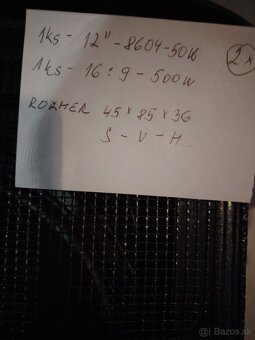 1ks - 12" - 8604 - 50W
2x
1ks - 16:9 - 500W
ROZMER 45 x 85 x 36
S - V - H
Bazos.sk